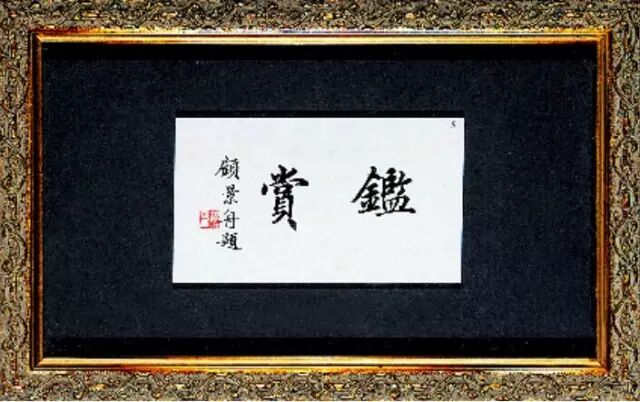 鑑賞
顧景舟題
5